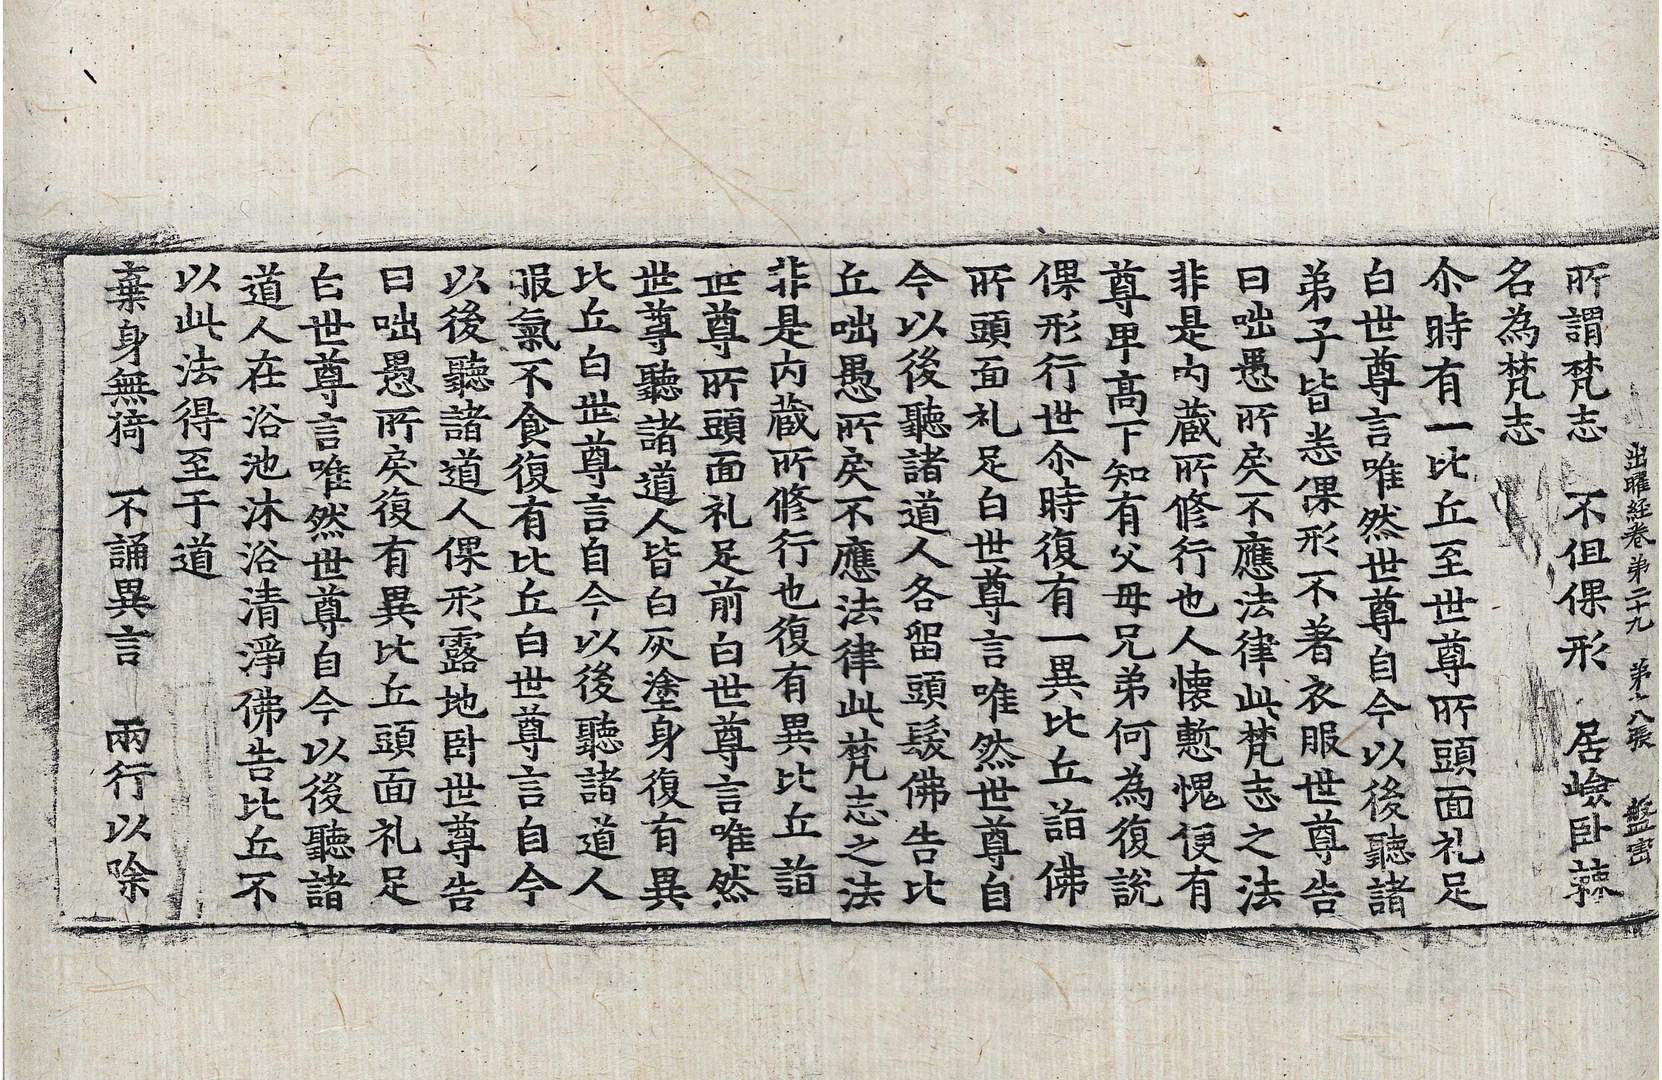 出曜経巻第二十九 第十八張 盤
所謂梵志 不但倮形 居嶮卧蕀
名為梵志
尒時有一比丘至世尊所頭面礼足
白世尊言唯然世尊自今以後聽諸
弟子皆悉倮形不著衣服世尊告
曰咄愚所戾不應法律此梵志之法
非是內蔵所修行也人懐慙愧便有
尊卑高下知有父母兄弟何為復說
倮形行世尒時復有一異比丘詣佛
所頭面礼足白世尊言唯然世尊自
今以後聽諸道人各留頭髮佛告比
丘咄愚所戾不應法律此梵志之法
非是內蔵所修行也復有異比丘詣
世尊所頭面礼足前白世尊言唯然
世尊聽諸道人皆白灰塗身復有異
比丘白世尊言自今以後聽諸道人
服氣不食復有比丘白世尊言自今
以後聽諸道人倮形露地卧世尊告
曰咄愚所戾復有異比丘頭面礼足
白世尊言唯然世尊自今以後聽諸
道人在浴池沐浴清淨佛告比丘不
以此法得至于道
棄身無猗 不誦異言 兩行以除